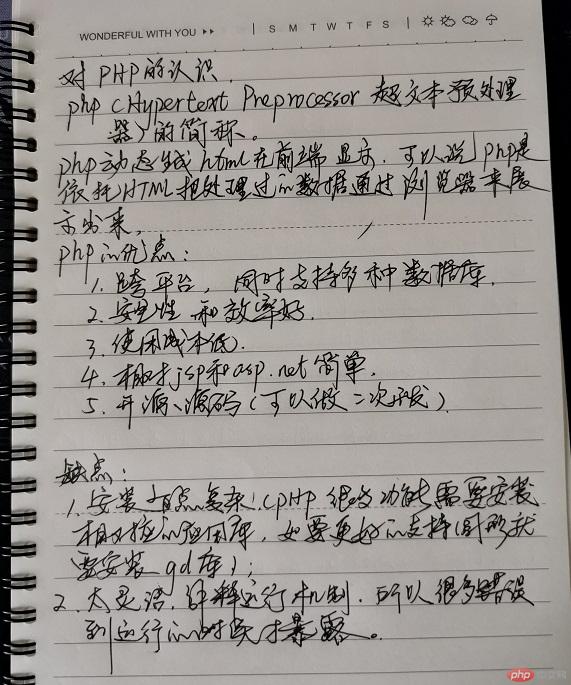 WONDERFUL WITH YOU ▸▸ | S M T W T F S |
对PHP的认识.
php (Hypertext Preprocessor 超文本预处理
器)的简称。
php动态生成html在前端显示. 可以说php是
依托HTML把处理过的数据通过浏览器来展
示出来.
php的优点:
1. 跨平台, 同时支持多种数据库.
2. 安全性和效率好.
3. 使用成本低.
4. 相对jsp和asp.net简单.
5. 开源、源码(可以做二次开发)
缺点:
1. 安装有点复杂!(PHP很多功能需要安装
相对应的应用库, 如要更好的支持图形就
要安装gd库);
2. 太灵活, 解释运行机制, 所以很多错误
到运行的时候才暴露。
php 中文网